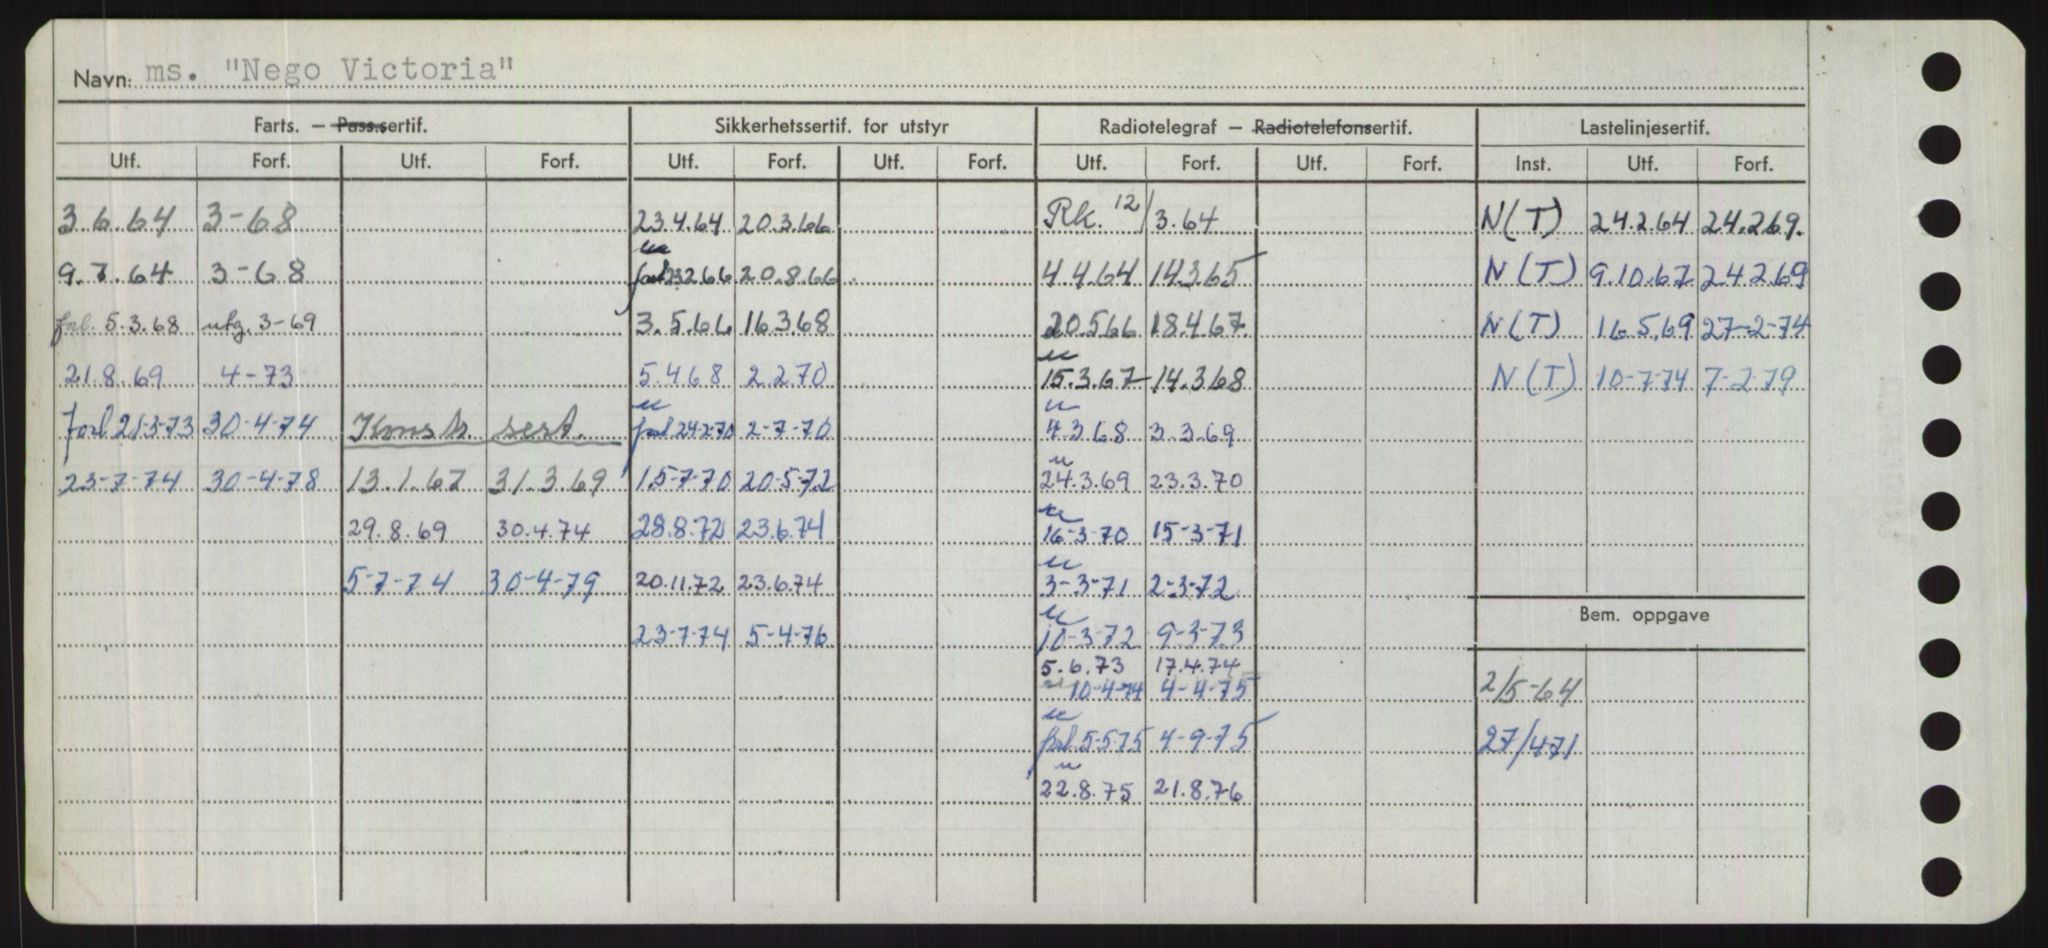 Navn: ms. "Nego Victoria"
Farts. — Pass.sertif. Sikkerhetssertif. for utstyr Radiotelegraf — Radiotelefonsertif. Lastelinjesertif.
Utf. Forf. Utf. Forf. Utf. Forf. Utf. Forf. Utf. Forf. Utf. Forf. Inst. Utf. Forf.
3.6.64 3-68 23.4.64 20.3.66 Rk. 12/3.64 N(T) 24.2.64 24.2.69.
9.7.64 3-68 forl 23.2.66 20.8.66 4.4.64 14.3.65 N(T) 9.10.67 24.2.69
forl. 5.3.68 utg. 3-69 3.5.66 16.3.68 20.5.66 18.4.67 N(T) 16.5.69 27-2-74
21.8.69 4-73 5.4.68 2.2.70 15.3.67 14.3.68 N(T) 10-7-74 7-2-79
forl 21-3-73 30-4-74 Konstr. sert. forl 24-2-70 2-7-70 4.3.68 3.3.69
23-7-74 30-4-78 13.1.67 31.3.69 15-7-70 20-5-72 24.3.69 23.3.70
29.8.69 30.4.74 28.8.72 23.6.74 16-3-70 15-3-71
5-7-74 30-4-79 20.11.72 23.6.74 3-3-71 2-3-72
Bem. oppgave
23-7-74 5-4-76 10-3-72 9-3-73
5.6.73 17.4.74
10-4-74 4-4-75 2/5-64
forl. 5-5-75 4-9-75 27/4 71
22.8.75 21.8.76